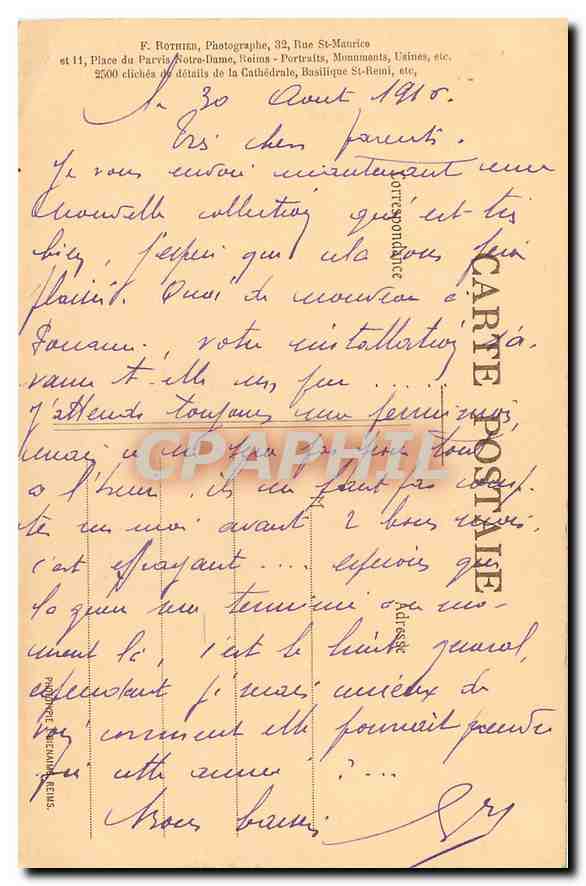 F. ROTHIER, Photographe, 32, Rue St-Maurice
et 11, Place du Parvis Notre-Dame, Reims - Portraits, Monuments, Usines, etc.
2500 clichés de détails de la Cathédrale, Basilique St-Remi, etc,
30 Aout 191
Très chers parents.
Je vous envoi maintenant une
nouvelle collection qui est très
bien, j'espère que cela vous fera
plaisir. Quoi de nouveau à
votre installation s'a-
vance t-elle un peu .....
J'attends toujours ma permission,
mais ce ne sera pas pour tout
à l'heure, ils ne faut pas comp-
ter un moi avant 2 bons mois.
c'est effrayant .... espérons que
la guerre sera terminé à ce mo-
ment là, c'est le général,
cependant j'aimais mieux
comment elle pourrait prendre
fin cette année ?...
Bons baisers
CARTE POSTALE
Correspondance
Adresse
PHOTOTYPIE J. BIENAIMÉ, REIMS.
CPAPHIL